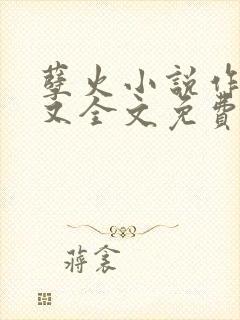 孽火小说作
文全文免费
蒋衾